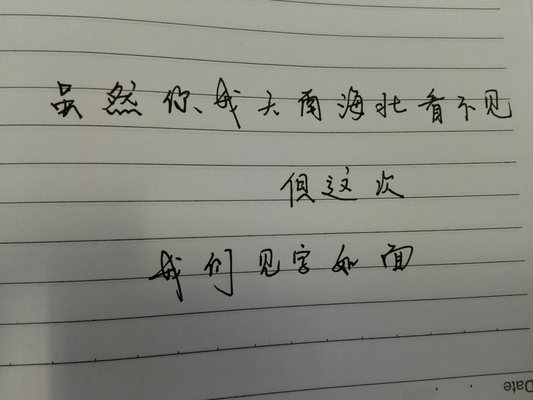 虽然你、我天南海北看不见
但这次
我们见字如面
Date